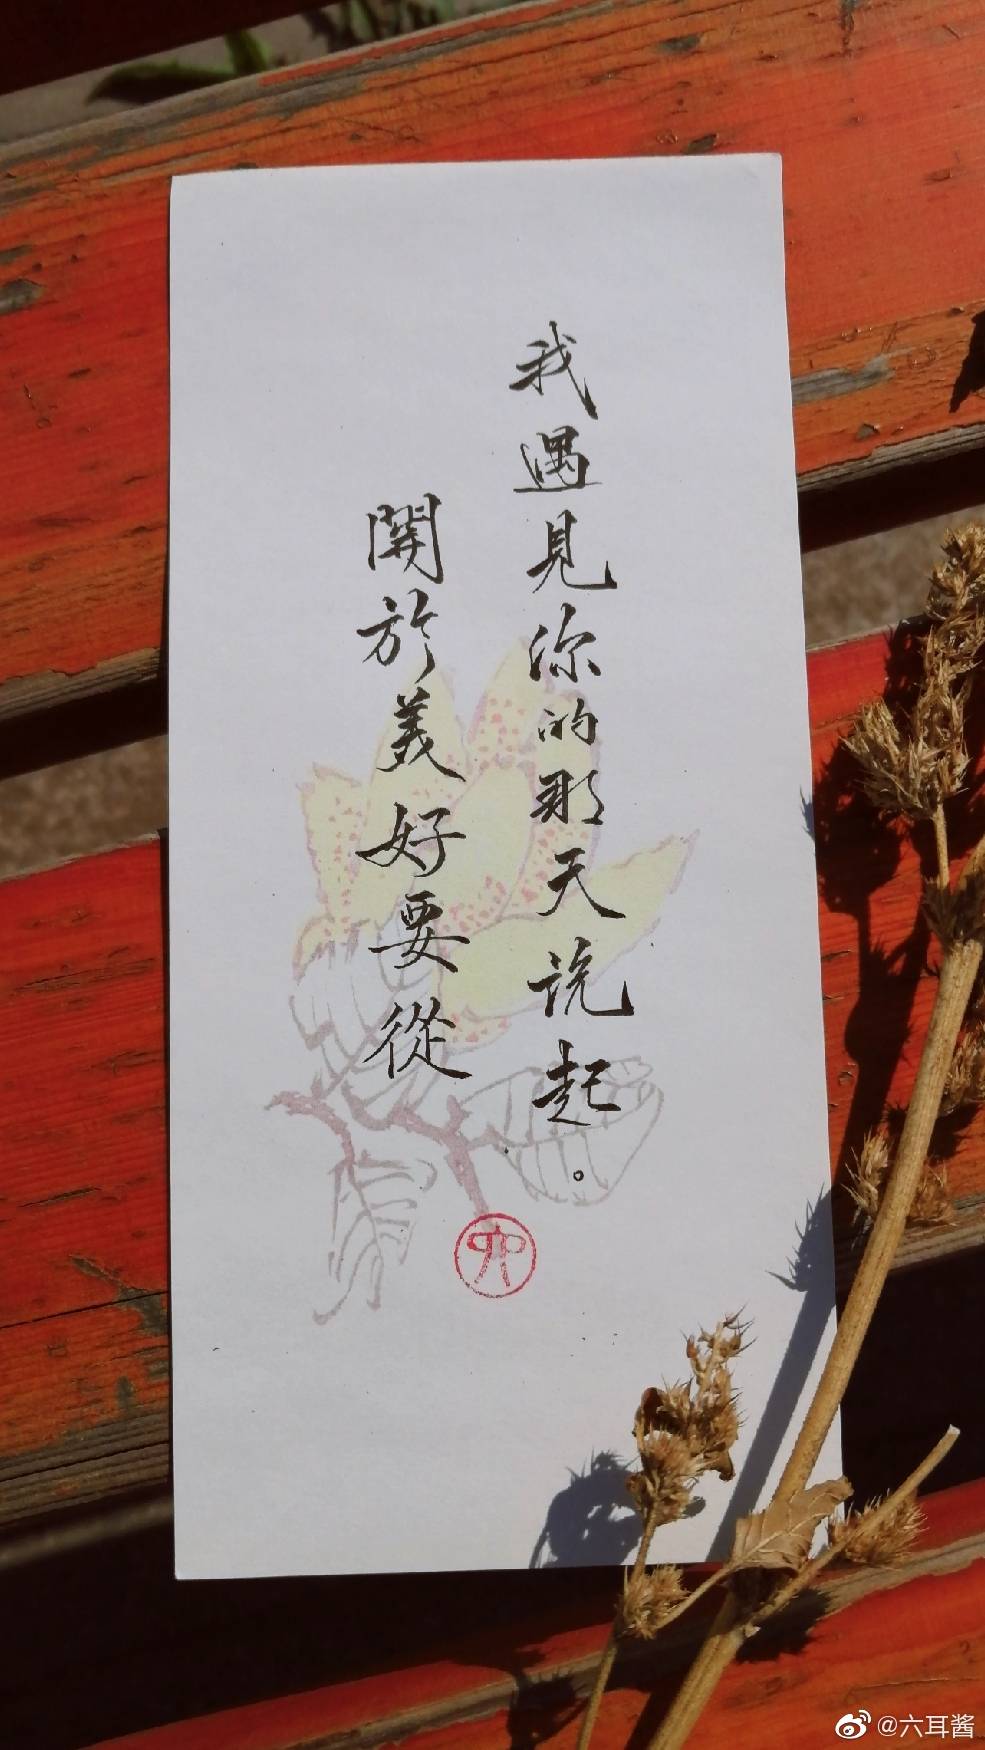 關於美好要從
我遇見你的那天说起。
六
@六耳酱